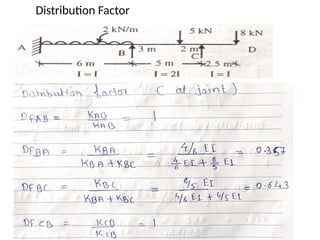 Distribution Factor
2 kN/m 5 kN 8 kN
A B 3 m 2 m C D
6 m 5 m 2.5 m
I = I I = 2I I = I
Distribution factor ( at joint )
DFAB = KAB / KAB = 1
DFBA = KBA / KBA + KBC = 4/6 EI / 4/6 EI + 8/5 EI = 0.357
DFBC = KBC / KBA + KBC = 4/5 EI / 4/6 EI + 4/5 EI = 0.643
DFCB = KCB / KCB = 1